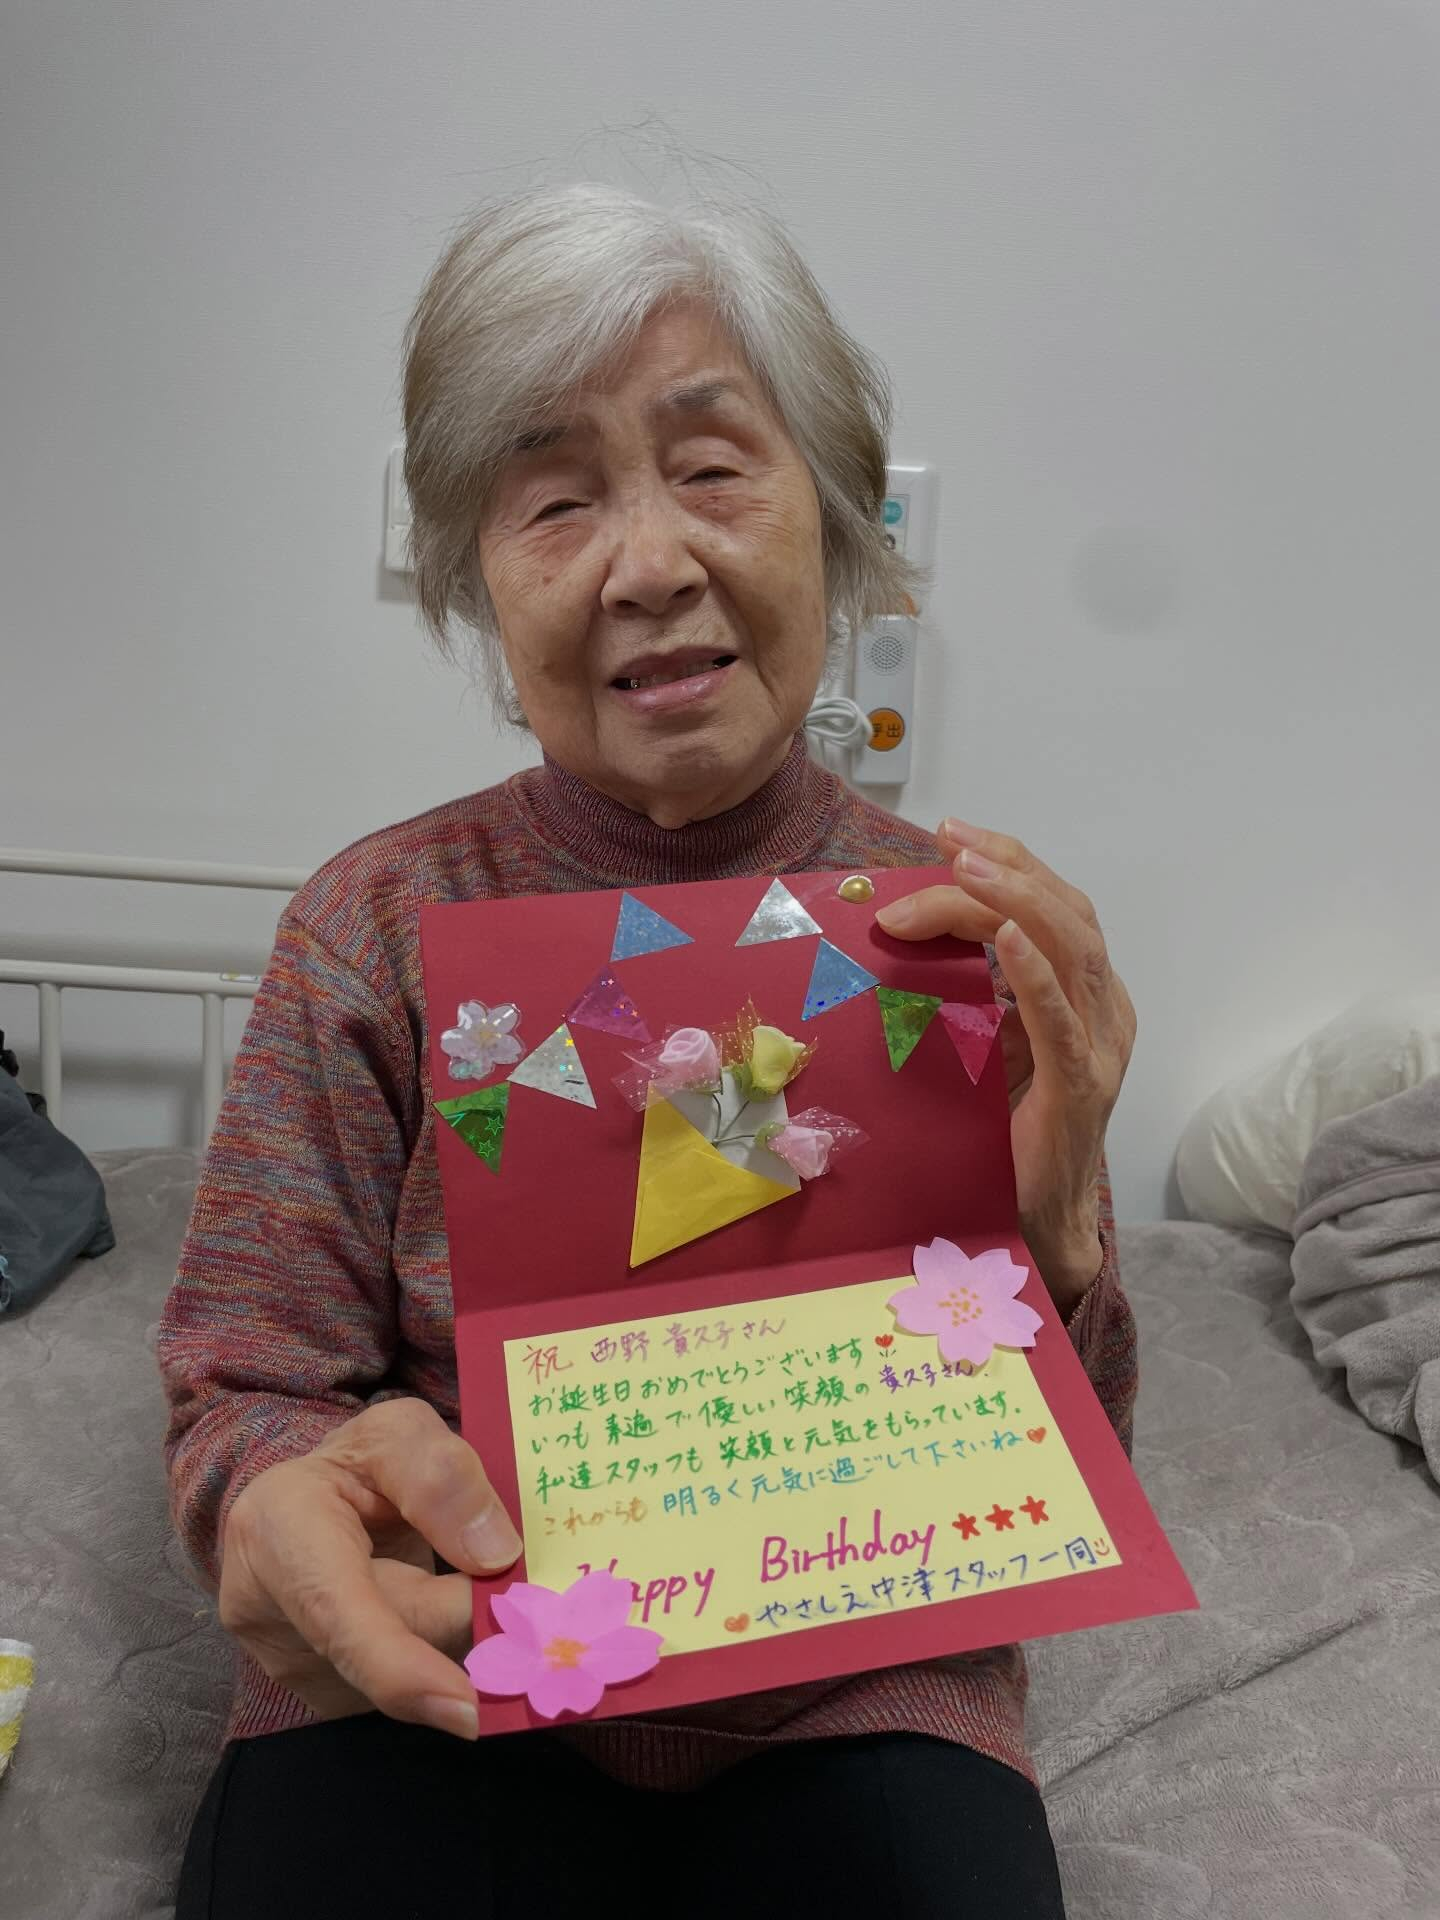 呼出
祝 西野 貴久子さん
お誕生日おめでとうございます
いつも素適で優しい笑顔の貴久子さん。
私達スタッフも笑顔と元気をもらっています。
これからも明るく元気に過ごして下さいね
Happy Birthday ★★★
やさしえ中津スタッフ一同